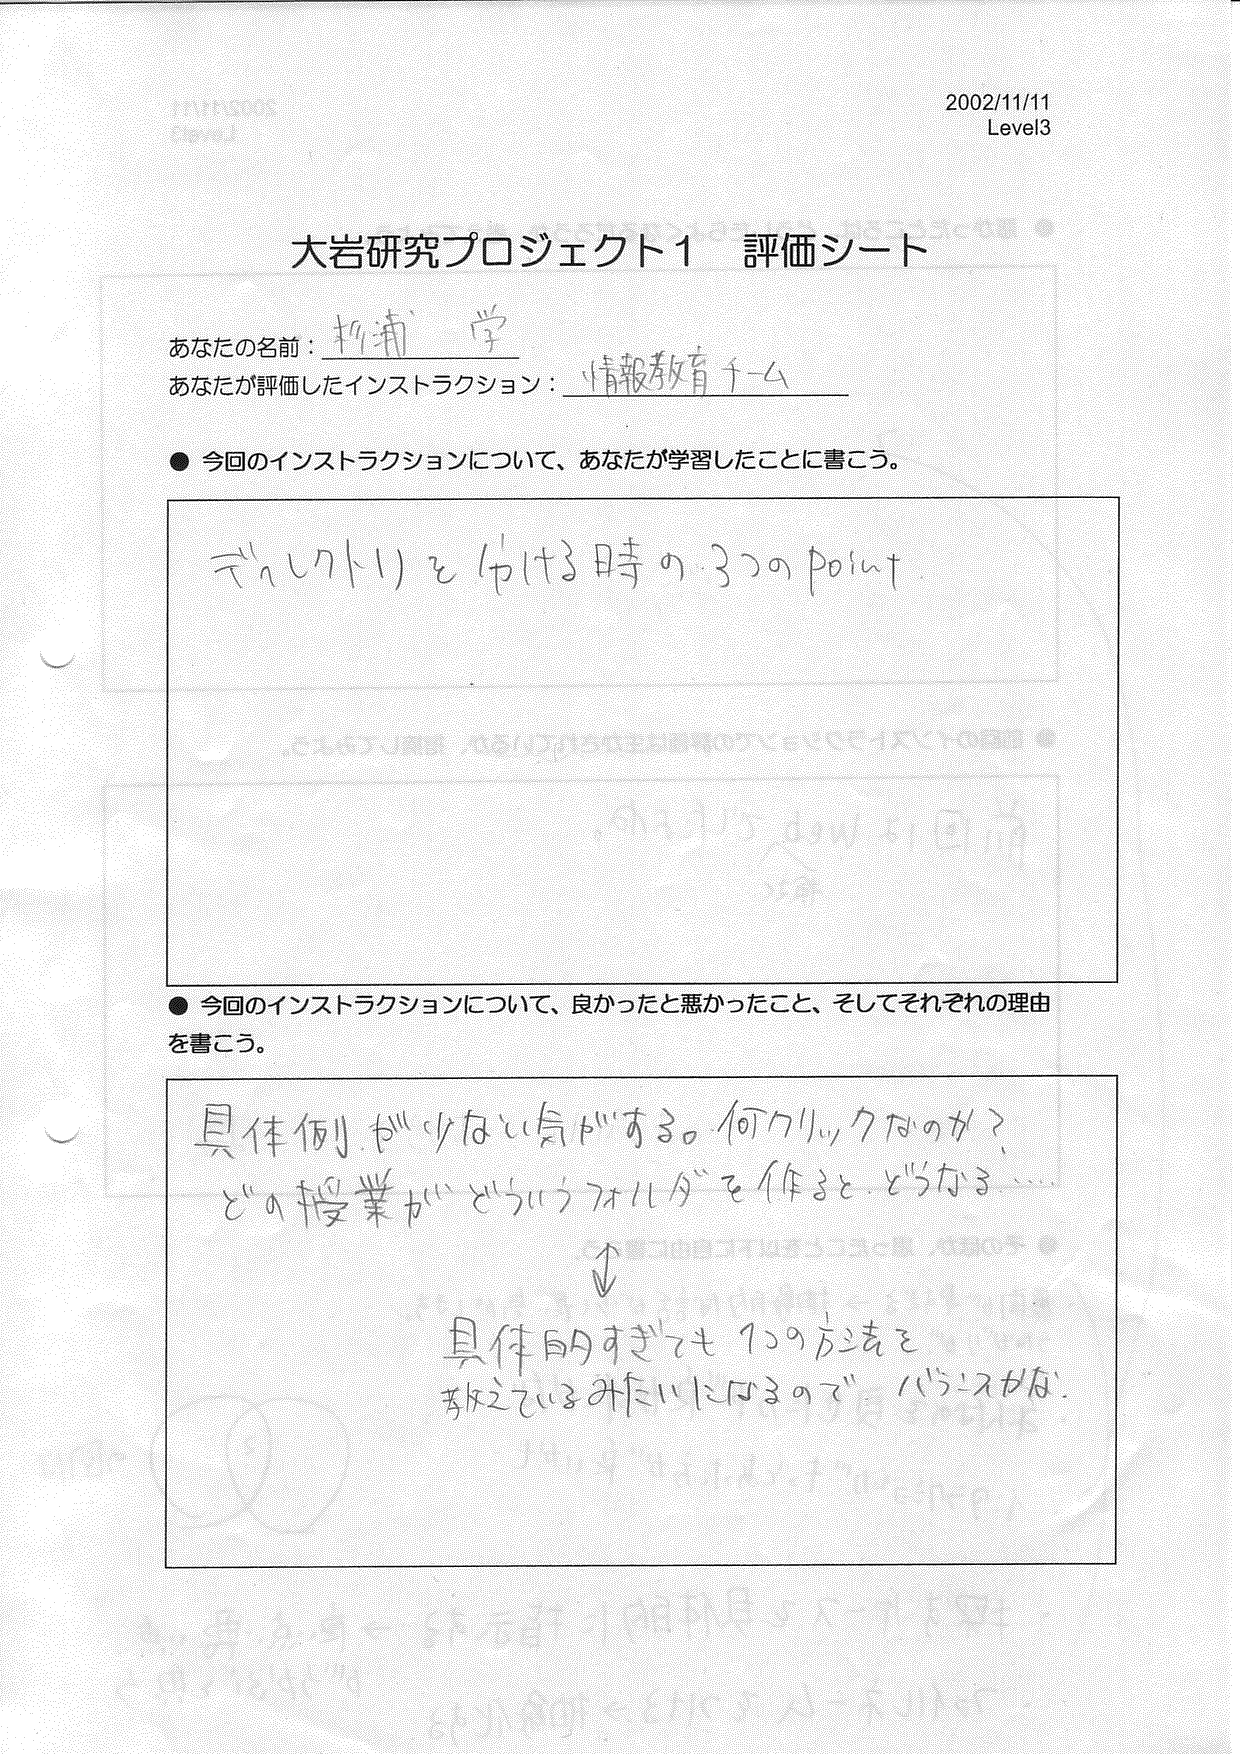 2002/11/11
Level3
大岩研究プロジェクト1　評価シート
あなたの名前：杉浦　学
あなたが評価したインストラクション：情報教育チーム
● 今回のインストラクションについて、あなたが学習したことに書こう。
ディレクトリを分ける時の3つのpoint.
● 今回のインストラクションについて、良かったと悪かったこと、そしてそれぞれの理由
を書こう。
具体例が少ない気がする。何クリックなのか？
どの授業がどういうフォルダを作ると、どうなる……
具体的すぎても1つの方法を
教えているみたいになるので、バランスかな.